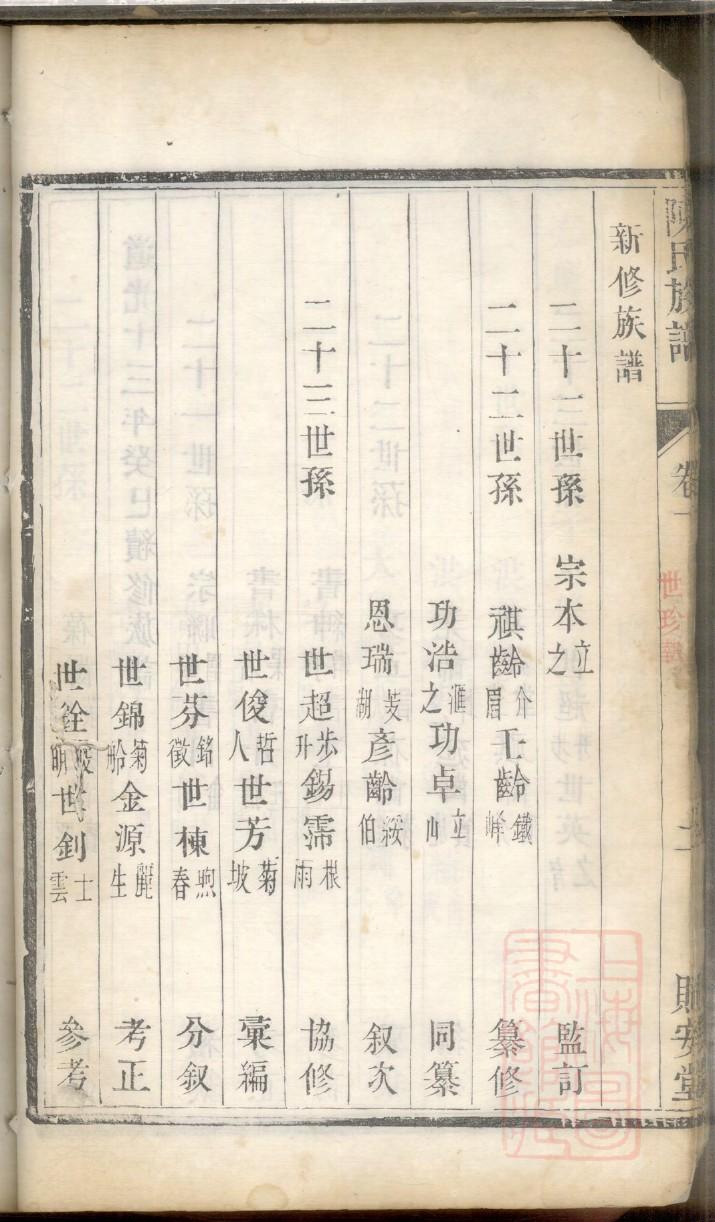 陳氏族譜 卷一
世珍
安堂
新修族譜
二十三世孫 宗本立之 監訂
二十二世孫 祺齡介眉 玉齡鐵峰 纂修
功浩滙之 功卓立山 同纂
恩瑞芰湖 彥齡綏伯 叙次
二十三世孫 世超步升 錫霈根雨 協修
世俊哲人 世芳菊坡 彙編
世芬銘徵 世棟煦春 分叙
世錦菊舲 金源麗生 考正
世銓 世釗士雲 參考
上海圖書館藏